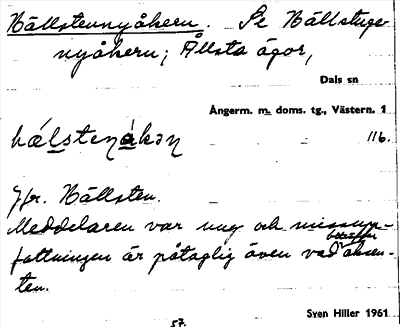 Hällstennyåkern. Se Hällstuge-
nyåkern; Ållsta ägor,
Dals sn
Ångerm. m. doms. tg., Västern. 1
116.
Jfr. Hällsten.
Meddelaren var ung och missupp-
fattningen är påtaglig även vad beträffar
aksen-
ten.
Sven Hiller 1961
57.